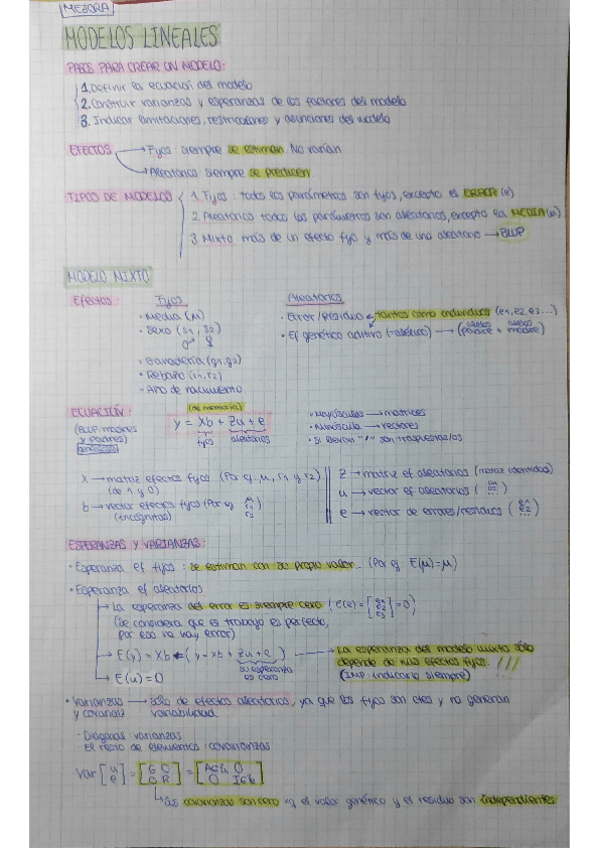 MEJORA
MODELOS LINEALES
PASOS PARA CREAR UN MODELO:
1. Definir la ecuación del modelo
2. Construir varianzas y esperanzas de los factores del modelo
3. Indicar limitaciones, restricciones y asunciones del modelo
EFECTOS
Fijos: siempre se estiman. No varían
Aleatorios siempre se predicen
TIPOS DE MODELOS
1. Fijos: todos los parámetros son fijos, excepto el ERROR (e)
2. Aleatorios todos los parámetros son aleatorios, excepto la MEDIA (μ)
3. Mixto más de un efecto fijo y más de uno aleatorio → BLUP
MODELO MIXTO
Efectos: Fijos Aleatorios
• Media (μ) • Error/Residuo ← tantos como individuos (e1, e2, e3...)
• Sexo (s1, s2) • Ef genético aditivo → (padre + madre)
♂ ♀
• Ganadería (g1, g2)
• Rebaño (r1, r2)
• Año de nacimiento
ECUACIÓN: (de memoria)
(BLUP: madres y padres) y = Xb + Zu + e
fijos aleatorios
• Mayúsculas → matrices
• Minúscula → vectores
• Si llevan "'" son traspuestas/os
X → matriz efectos fijos (Por ej: μ, r1 y r2)
(de 1 y 0)
b → vector efectos fijos (Por ej
(incógnitas)
Z → matriz ef aleatorios (matriz identidad)
u → vector ef aleatorios
e → vector de errores/residuos
ESPERANZAS Y VARIANZAS:
• Esperanza ef fijos: se estiman con su propio valor. (Por ej: E(μ)=μ)
• Esperanza ef aleatorios
La esperanza del error es siempre cero (E(e) = [e1 e2 e3] = 0)
(Se considera que el trabajo es perfecto,
por eso no hay error)
E(y) = Xb ← (y = xb + zu + e) → La esperanza del modelo mixto sólo
su esperanza es cero
depende de sus efectos fijos. !!!
(IMP indicarlo siempre)
E(u) = 0
• Varianzas → sólo de efectos aleatorios, ya que los fijos son ctes y no generan
y covarianz variabilidad
- Diagonal: varianzas
- El resto de elementos: covarianzas
Var [u e] = [G 0 0 R] =
Las covarianzas son cero xq el valor genético y el residuo son independientes